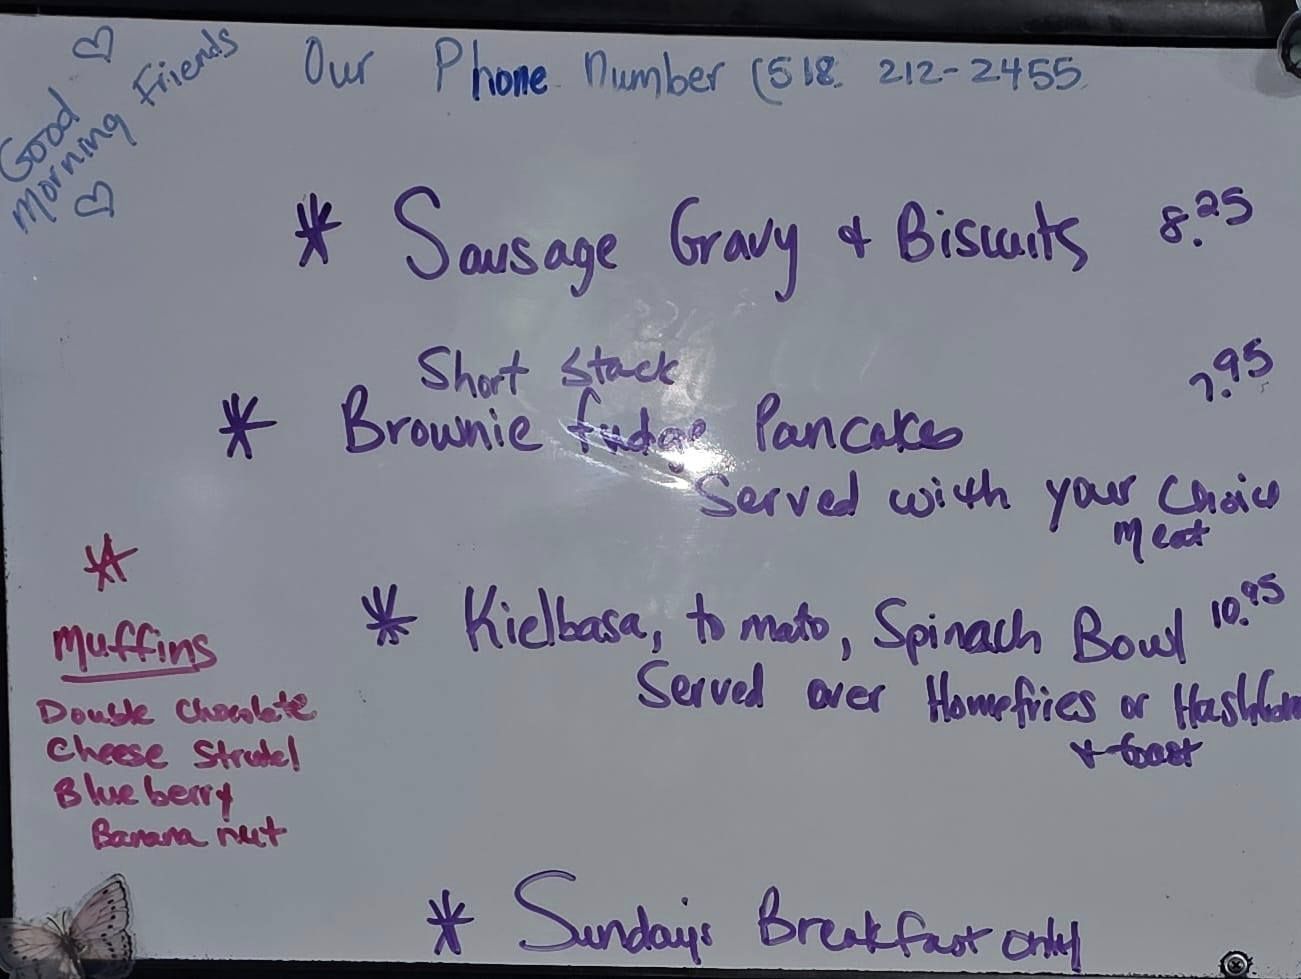 Good
Morning Friends
Our Phone Number (518. 212-2455
* Sausage Gravy & Biscuits 8.25
Short Stack
* Brownie fudge Pancakes 7.95
Served with your Choice
Meat
* Kielbasa, tomato, Spinach Bowl 10.95
Served over Homefries or Hashbrown
& toast
*
Muffins
Double Chocolate
Cheese Strudel
Blueberry
Banana nut
* Sundays Breakfast only